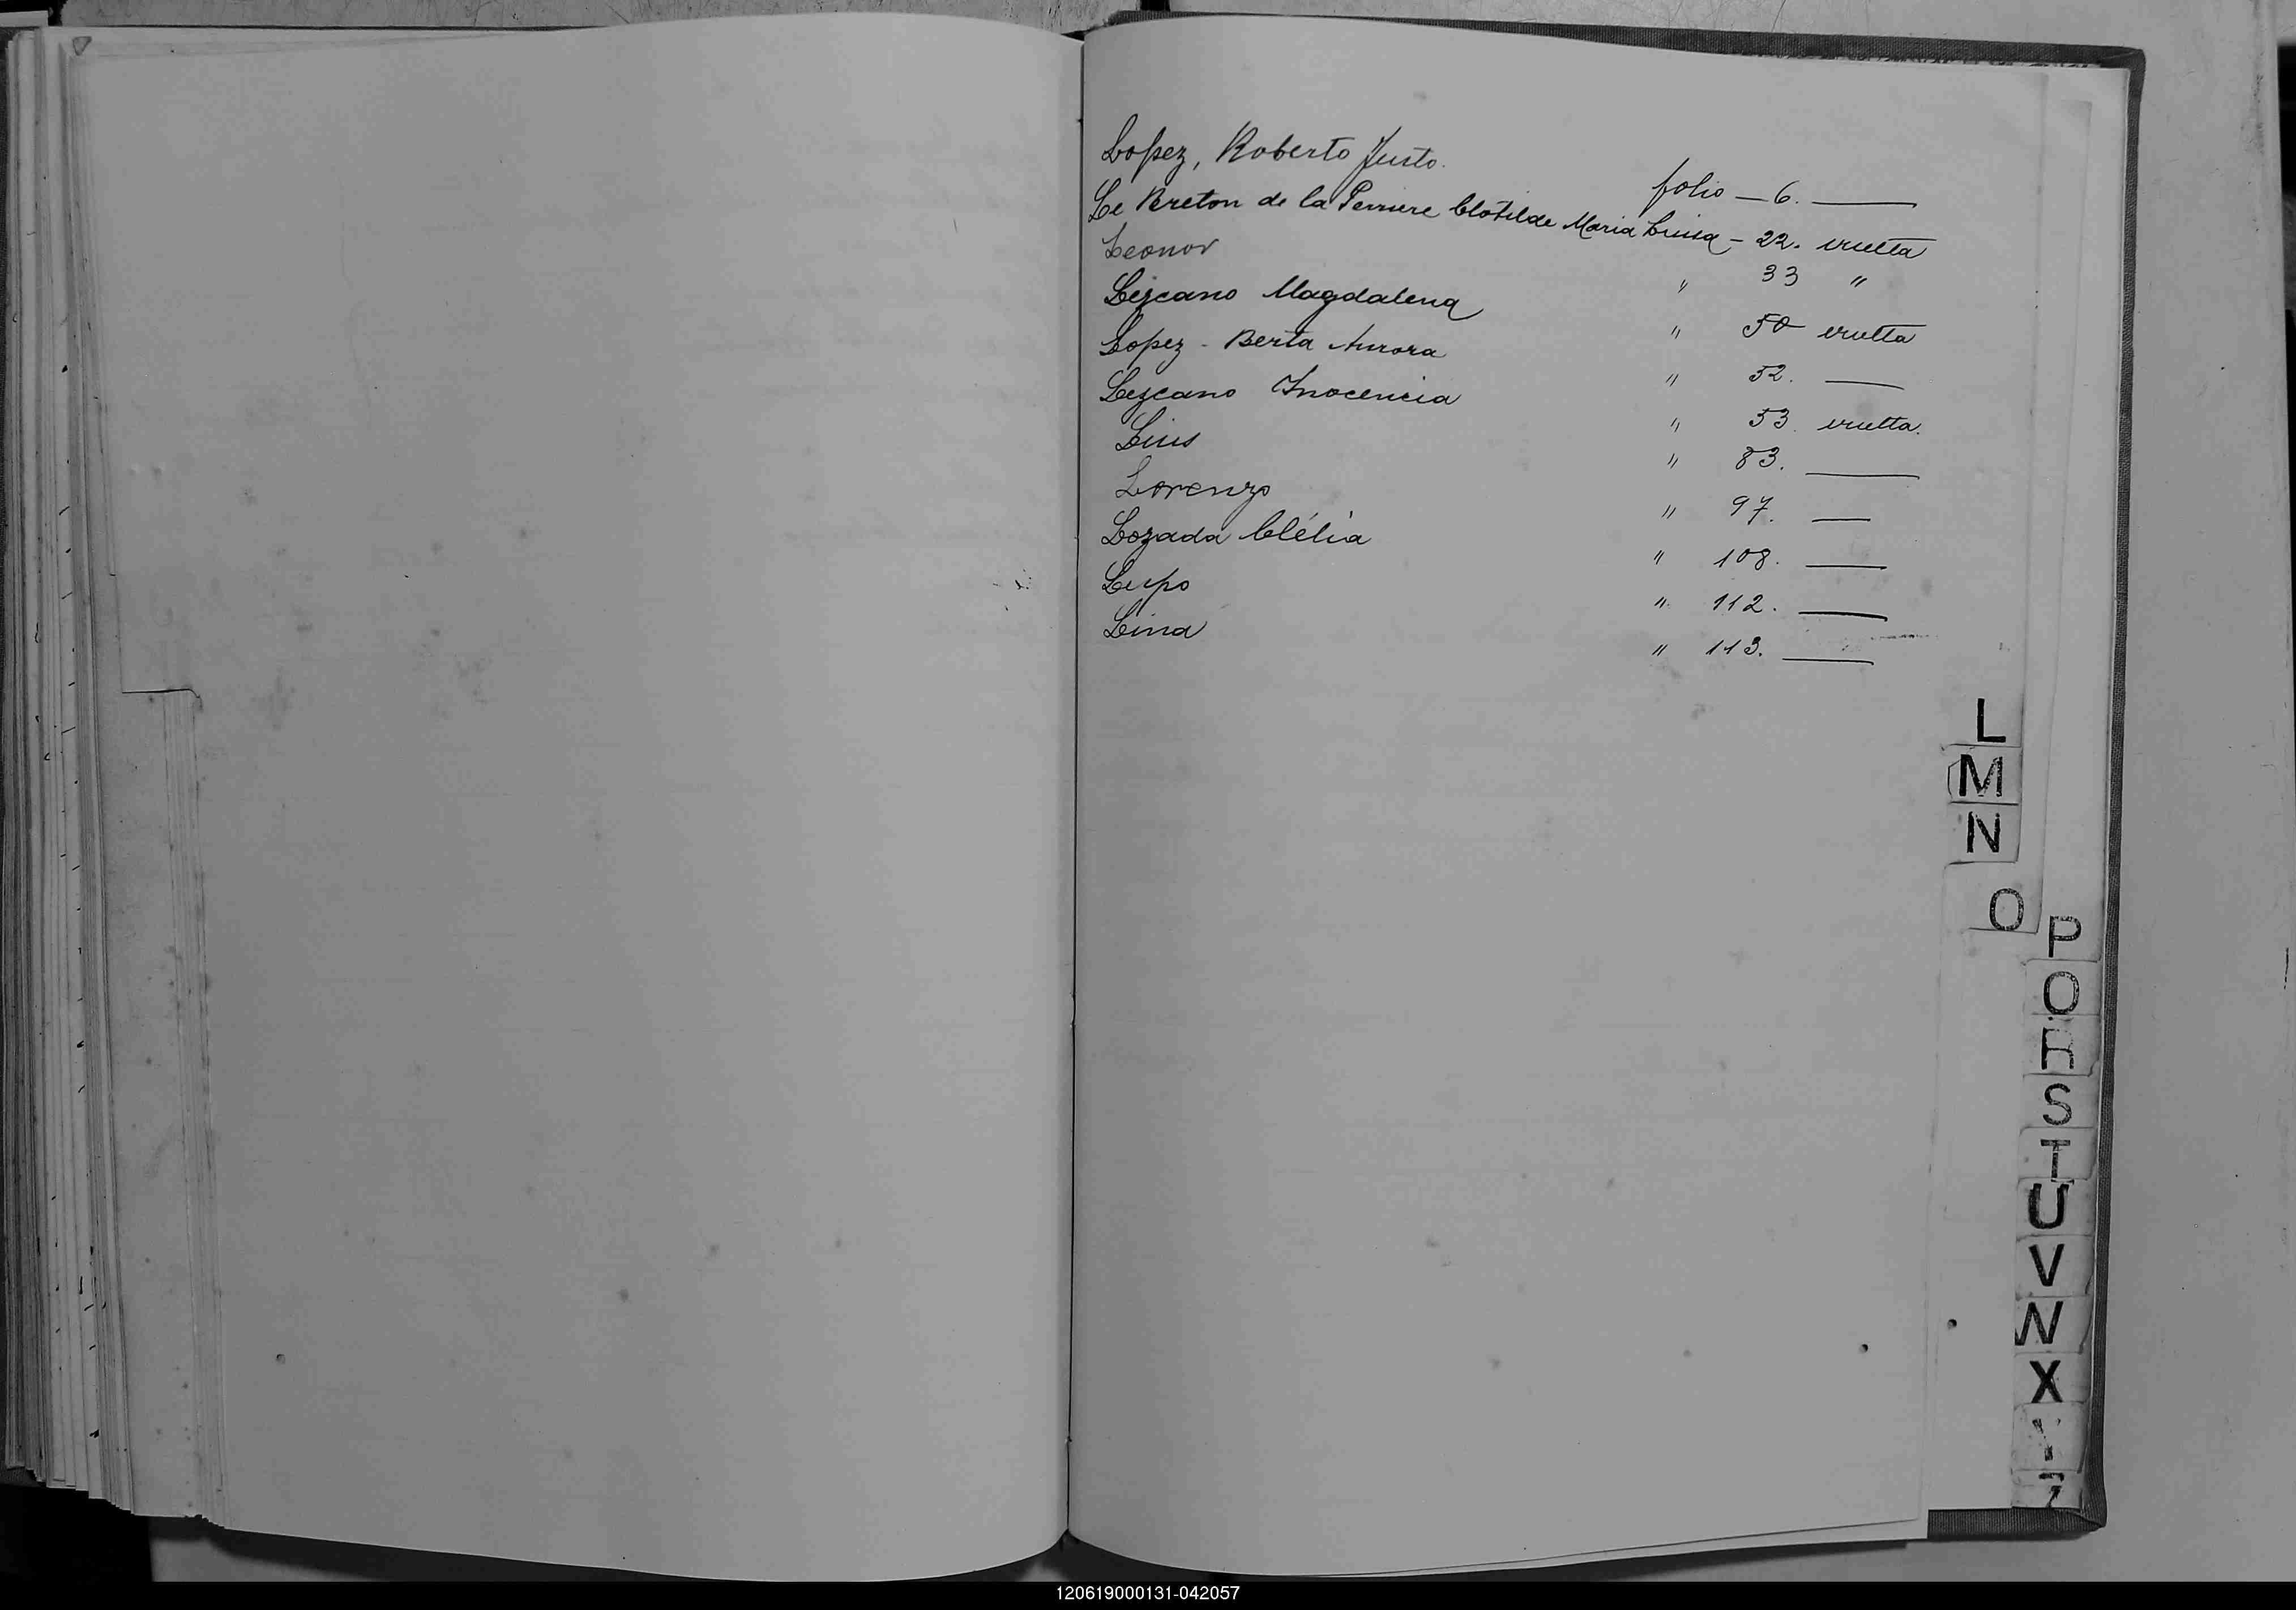 Lopez, Roberto Justo. folio — 6. ———
Le Breton de la Perriere Clotilde Maria Luisa — 22. vuelta
Leonor " 33 "
Lezcano Magdalena " 50 vuelta
Lopez - Berta Aurora " 52. ———
Lezcano Inocencia " 53. vuelta.
Luis " 83. ———
Lorenzo " 97. ———
Lozada Clélia " 108. ———
Lupo " 112. ———
Lina " 113. ———
L
M
N
O
P
Q
R
S
T
U
V
W
X
Y
Z
120619000131-042057